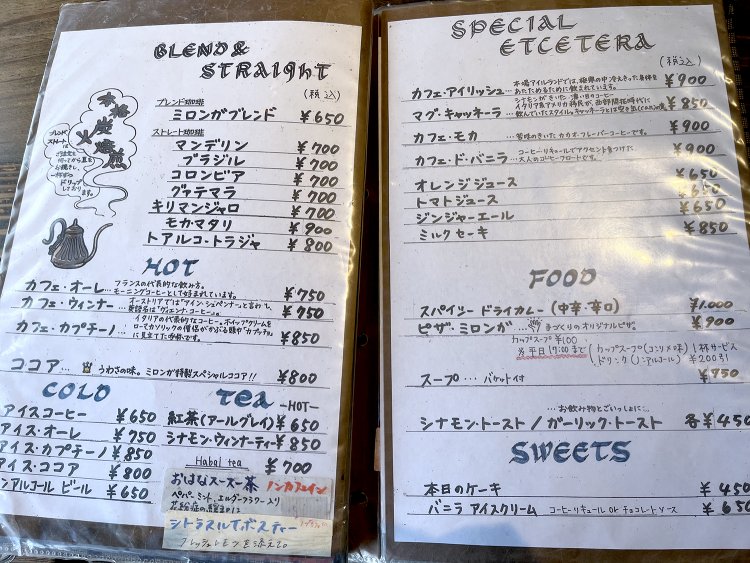 BLEND &
STRAIGHT
(税込)
本格炭火焙煎
ブレンド珈琲
ミロンガブレンド ¥650
ストレート珈琲
マンデリン ¥700
ブラジル ¥700
コロンビア ¥700
グァテマラ ¥700
キリマンジャロ ¥700
モカ・マタリ ¥900
トアルコ・トラジャ ¥800
HOT
カフェ・オーレ フランスの代表的な飲み方。 ¥750
モーニングコーヒーとして好まれています。
カフェ・ウィンナー オーストリアでは"アイン・シュペンナー"と言わ ¥750
英語名は"ヴィエンナ・コーヒー"。
カフェ・カプチーノ イタリアの代表的なコーヒー。ホイップクリームを ¥850
ローマカソリックの僧侶がかぶる帽子"カプッチョ"
に見立てた呼称です。
ココア… うわさの味。ミロンガ特製スペシャルココア!! ¥800
COLD
アイスコーヒー ¥650
アイス・オーレ ¥750
アイス・カプチーノ ¥850
アイス・ココア ¥800
ンアルコール ビール ¥650
Tea -HOT-
紅茶(アールグレイ) ¥650
シナモン・ウィンナーティー ¥850
Habal tea ¥700
おはなスースー茶 ノンカフェイン
ペパーミント、エルダーフラワー入り
シトラスルイボスティー
フレッシュレモンを添えて。
SPECIAL
ETCETERA
(税込)
カフェ・アイリッシュ 本場アイルランドでは、極寒の中冷えきった身体を ¥900
あたためるために飲まれています。
マグ・キャッネーラ シナモンがきいた、濃い目のコーヒー ¥850
イタリア系アメリカ移民が西部開拓時代に
カフェ・モカ …苦味のきいたカカオ・フレーバーコーヒーです。 ¥900
カフェ・ド・バニラ コーヒー・リキュールでアクセントをつけた ¥900
…大人のコーヒーフロートです。
オレンジジュース ¥650
トマトジュース ¥650
ジンジャーエール ¥650
ミルクセーキ ¥850
FOOD
スパイシー ドライカレー (中辛・辛口) ¥1.000
ピザ・ミロンガ… 手づくりのオリジナルピザ。 ¥900
カップスープ ¥100
※平日17:00まで (カップスープ(コンソメ味) 1杯サービス
ドリンク(ノンアルコール) ¥200引
スープ… バケット付 ¥750
…お飲み物とごいっしょに…
シナモン・トースト / ガーリック・トースト 各¥450
SWEETS
本日のケーキ ¥450
バニラ アイスクリーム コーヒーリキュール or チョコレートソース ¥650